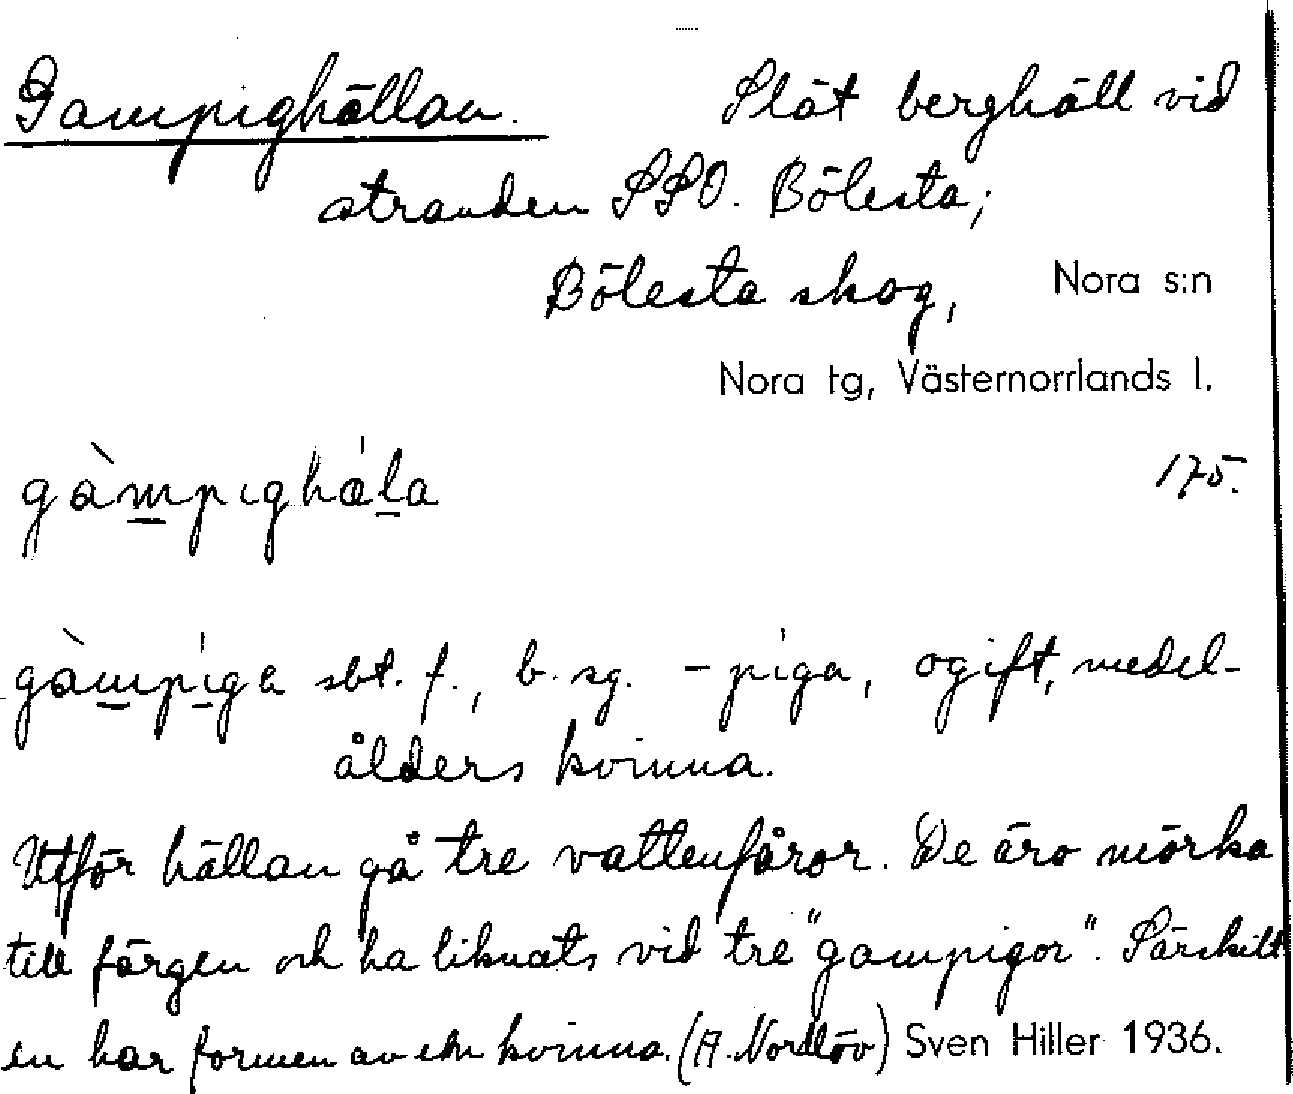 Gampighällan. Slät berghäll vid
stranden SSO. Bölesta;
Bölesta skog, Nora s:n
Nora tg, Västernorrlands l.
gàmpighála 175.
gàmpíga sbt. f., b. sg. -píga, ogift, medel-
ålders kvinna.
Utför hällan gå tre vattenfåror. De äro mörka
till färgen och ha liknats vid tre "gampigor". Särskilt
en har formen av en kvinna. (A. Nordlöv) Sven Hiller 1936.